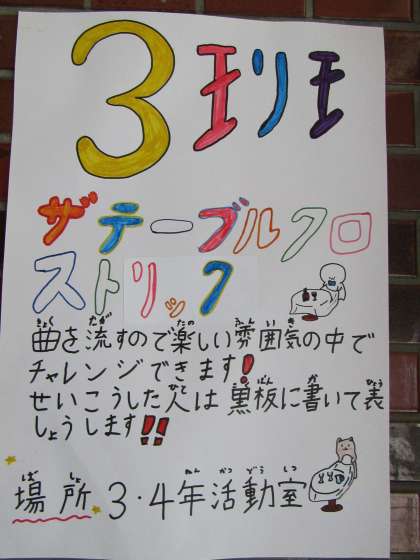 3班
ザテーブルクロ
ストリック
曲を流すので楽しい雰囲気の中で
チャレンジできます!
せいこうした人は黒板に書いて表
しょうします!!
場所 3・4年活動室